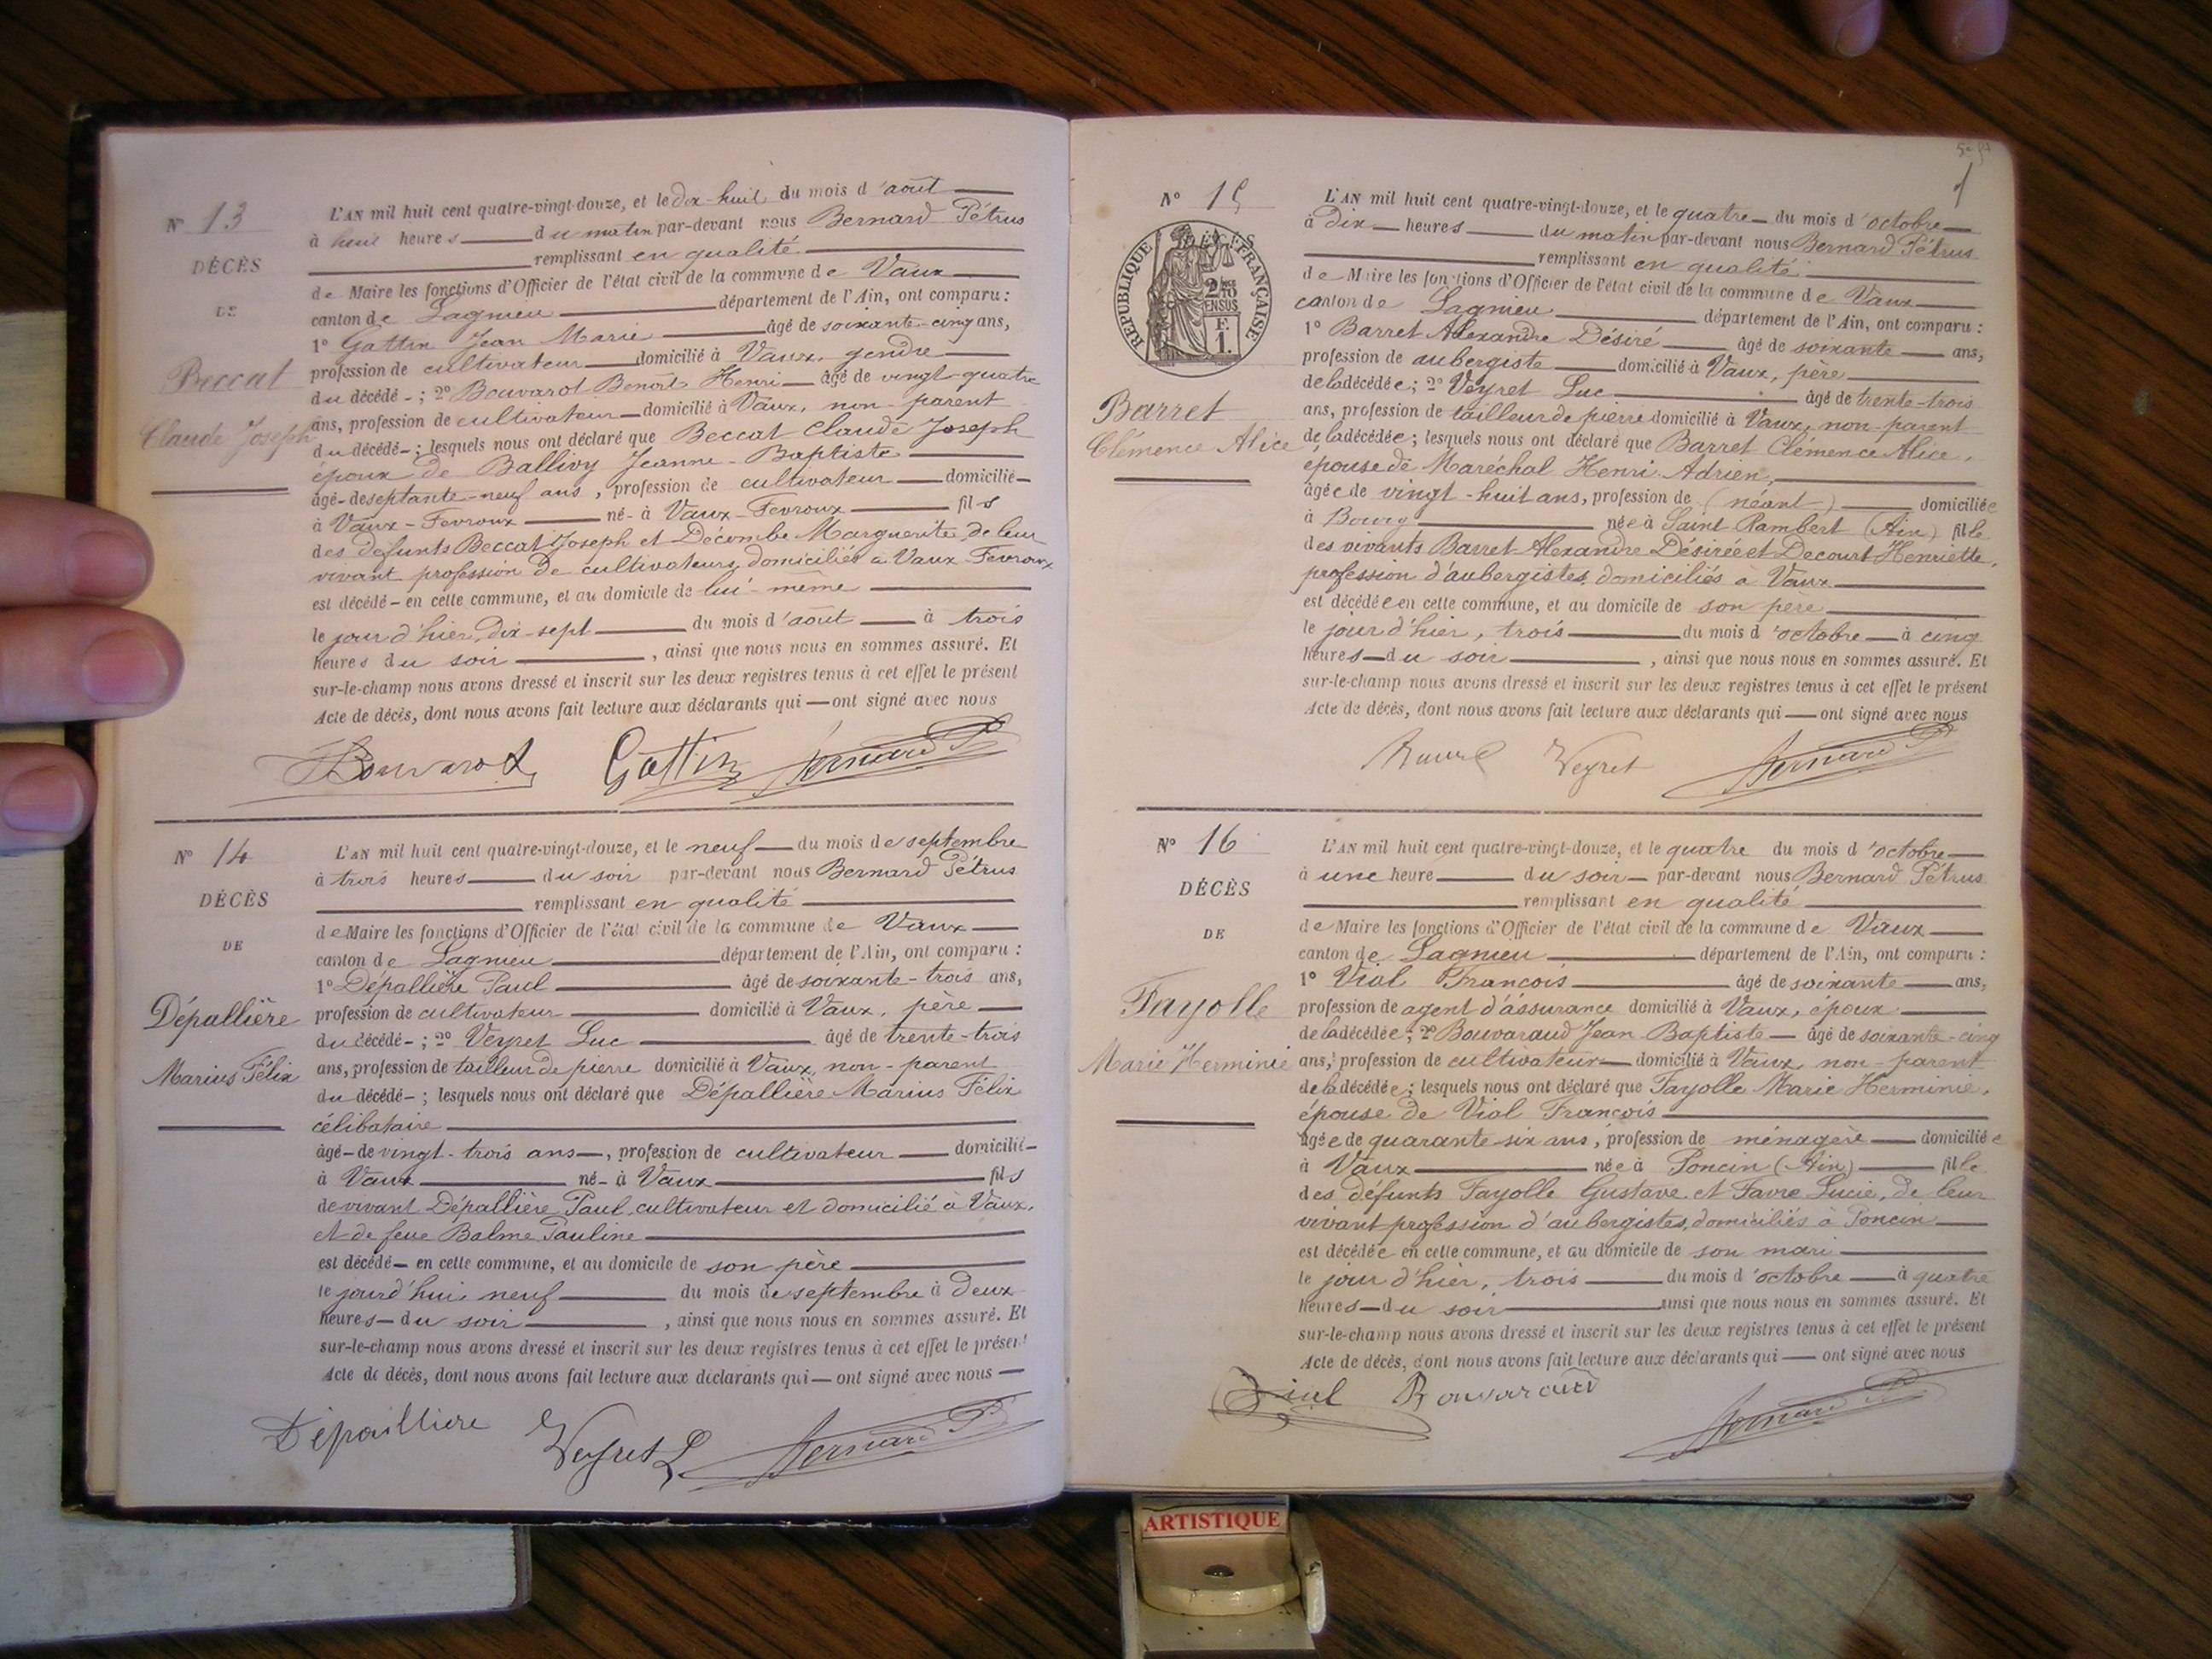 N° 13
DÉCÈS
DE
Beccat
Claude Joseph
L'AN mil huit cent quatre-vingt-douze, et le dix-huit du mois d'août
à huit heures du matin par-devant nous Bernard Pétrus
remplissant en qualité
de Maire les fonctions d'Officier de l'état civil de la commune de Vaux
canton de Lagnieu département de l'Ain, ont comparu :
1° Gattin Jean Marie âgé de soixante-cinq ans,
profession de cultivateur domicilié à Vaux, gendre
du décédé - ; 2° Bouvarot Benoît Henri âgé de vingt-quatre
ans, profession de cultivateur domicilié à Vaux, non-parent
du décédé - ; lesquels nous ont déclaré que Beccat Claude Joseph
époux de Ballivy Jeanne-Baptiste
âgé - de septante-neuf ans, profession de cultivateur domicilié -
à Vaux-Fevroux né - à Vaux-Fevroux fils
des défunts Beccat Joseph et Décombe Marguerite, de leur
vivant profession de cultivateurs, domiciliés à Vaux-Fevroux
est décédé - en cette commune, et au domicile de lui-même
le jour d'hier, dix-sept du mois d'août à trois
heures du soir, ainsi que nous nous en sommes assuré. Et
sur-le-champ nous avons dressé et inscrit sur les deux registres tenus à cet effet le présent
Acte de décès, dont nous avons fait lecture aux déclarants qui — ont signé avec nous
Bouvarot Gattin Bernard P
N° 14
DÉCÈS
DE
Dépallière
Marius Félix
L'AN mil huit cent quatre-vingt-douze, et le neuf du mois de septembre
à trois heures du soir par-devant nous Bernard Pétrus
remplissant en qualité
de Maire les fonctions d'Officier de l'état civil de la commune de Vaux
canton de Lagnieu département de l'Ain, ont comparu :
1° Dépallière Paul âgé de soixante-trois ans,
profession de cultivateur domicilié à Vaux, père
du décédé - ; 2° Veyret Luc âgé de trente-trois
ans, profession de tailleur de pierre domicilié à Vaux, non-parent
du décédé - ; lesquels nous ont déclaré que Dépallière Marius Félix
célibataire
âgé - de vingt-trois ans, profession de cultivateur domicilié -
à Vaux né - à Vaux fils
de vivant Dépallière Paul, cultivateur et domicilié à Vaux,
et de feue Balme Pauline
est décédé - en cette commune, et au domicile de son père
le jourd'hui neuf du mois de septembre à deux
heures du soir, ainsi que nous nous en sommes assuré. Et
sur-le-champ nous avons dressé et inscrit sur les deux registres tenus à cet effet le présent
Acte de décès, dont nous avons fait lecture aux déclarants qui — ont signé avec nous —
Dépaillière Veyret L Bernard P
N° 15
DÉCÈS
RÉPUBLIQUE FRANÇAISE
2/10 EN SUS
F. 1.
Barret
Clémence Alice
L'AN mil huit cent quatre-vingt-douze, et le quatre du mois d'octobre
à dix heures du matin par-devant nous Bernard Pétrus
remplissant en qualité
de Maire les fonctions d'Officier de l'état civil de la commune de Vaux
canton de Lagnieu département de l'Ain, ont comparu :
1° Barret Alexandre Désiré âgé de soixante ans,
profession de aubergiste domicilié à Vaux, père
de la décédée ; 2° Veyret Luc âgé de trente-trois
ans, profession de tailleur de pierre domicilié à Vaux, non-parent
de la décédée ; lesquels nous ont déclaré que Barret Clémence Alice,
épouse de Maréchal Henri Adrien,
âgée de vingt-huit ans, profession de (néant) domiciliée
à Bourg née à Saint Rambert (Ain) fille
des vivants Barret Alexandre Désirée et Decourt Henriette,
profession d'aubergistes, domiciliés à Vaux
est décédée en cette commune, et au domicile de son père
le jour d'hier, trois du mois d'octobre à cinq
heures du soir, ainsi que nous nous en sommes assuré. Et
sur-le-champ nous avons dressé et inscrit sur les deux registres tenus à cet effet le présent
Acte de décès, dont nous avons fait lecture aux déclarants qui — ont signé avec nous
Veyret Bernard P
N° 16
DÉCÈS
DE
Fayolle
Marie Herminie
L'AN mil huit cent quatre-vingt-douze, et le quatre du mois d'octobre
à une heure du soir par-devant nous Bernard Pétrus
remplissant en qualité
de Maire les fonctions d'Officier de l'état civil de la commune de Vaux
canton de Lagnieu département de l'Ain, ont comparu :
1° Vial François âgé de soixante ans,
profession de agent d'assurance domicilié à Vaux, époux
de la décédée ; 2° Bouvaraud Jean Baptiste âgé de soixante-cinq
ans, profession de cultivateur domicilié à Vaux, non-parent
de la décédée ; lesquels nous ont déclaré que Fayolle Marie Herminie,
épouse de Vial François
âgée de quarante-six ans, profession de ménagère domiciliée
à Vaux née à Poncin (Ain) fille
des défunts Fayolle Gustave et Favre Lucie, de leur
vivant profession d'aubergistes, domiciliés à Poncin
est décédée en cette commune, et au domicile de son mari
le jour d'hier, trois du mois d'octobre à quatre
heures du soir ainsi que nous nous en sommes assuré. Et
sur-le-champ nous avons dressé et inscrit sur les deux registres tenus à cet effet le présent
Acte de décès, dont nous avons fait lecture aux déclarants qui — ont signé avec nous
Vial Bouvaraud Bernard P
ARTISTIQUE